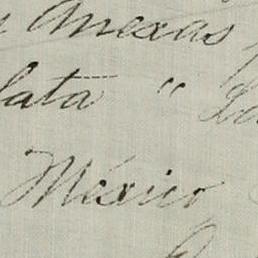 Anexas
lata "
México